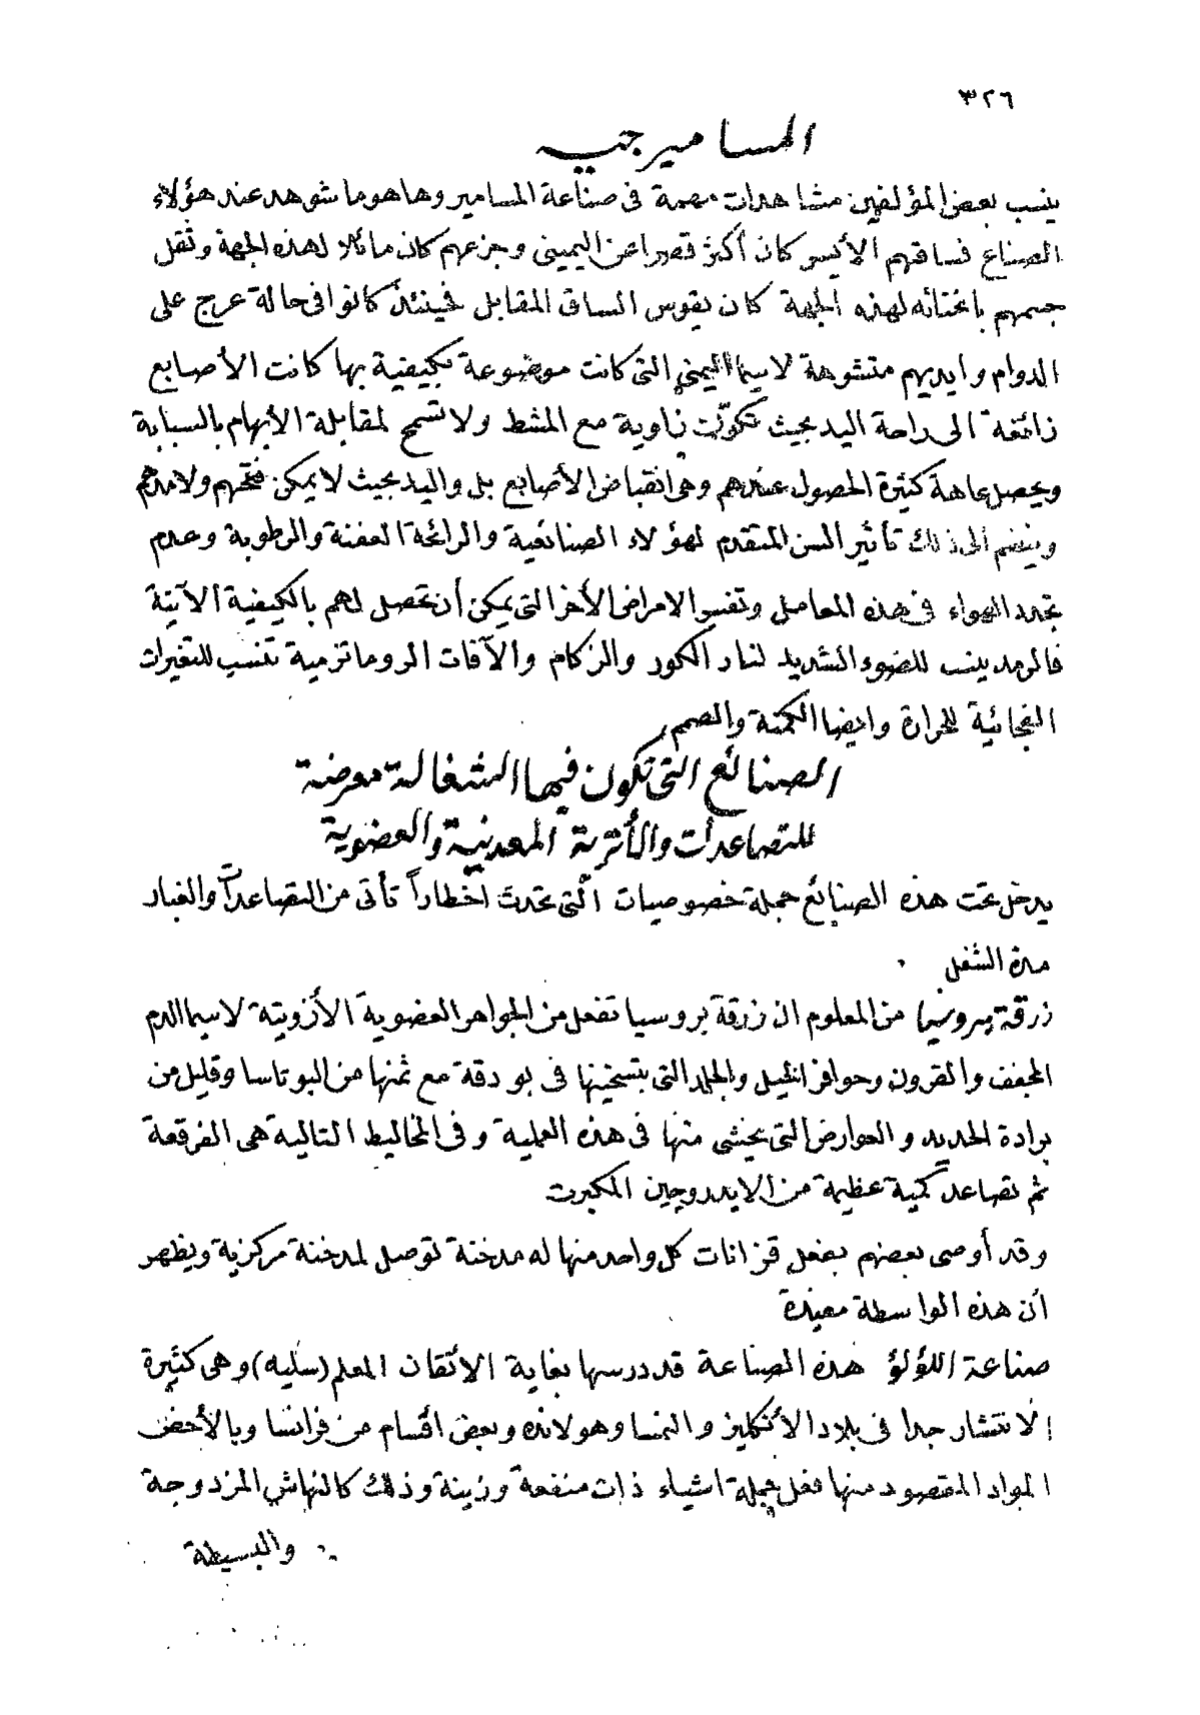 ٣٢٦
المساميرجيه
ينسب بعض المؤلفين مشاهدات مهمة فى صناعة المسامير وهاهوما شوهد عند هؤلاء
الصناع فساقهم الأيسر كان أكثر قصرا عن اليمينى وجزعهم كان مائلا لهذه الجهة وثقل
جسمهم بانحنائه لهذه الجهة كان يقوس الساق المقابل فحينئذ كانوا فى حالة عرج على
الدوام وايديهم متشوهة لاسيما اليمنى التى كانت موضوعة بكيفية بها كانت الأصابع
زائغة الى راحة اليد بحيث تكوّن زاوية مع المشط ولا تسمح لمقابلة الأبهام بالسبابة
ويحصل عاهة كثيرة الحصول عندهم وهى انقباض الأصابع بل واليد بحيث لا يمكن فتحهم ولا مدهم
وينضم الى ذلك تأثير السن المتقدم لهؤلاء الصنائعية والرائحة العفنة والرطوبة وعدم
تجدد الهواء فى هذه المعامل وتفسير الامراض الأخر التى يمكن أن تحصل لهم بالكيفية الآتية
فالرمد ينسب للضوء الشديد لنار الكور والزكام والآفات الروماتزمية تنسب للتغيرات
الفجائية للحرارة وايضا الكمنة والصمم
الصنائع التى تكون فيها الشغالة معرضة
للتصاعدات والأتربة المعدنية والعضوية
يدخل تحت هذه الصنائع جملة خصوصيات الّتى تحدث اخطاراً تأتى من التصاعدات والغبار
مدة الشغل
زرقة بروسيا من المعلوم ان زرقة بروسيا تفعل من الجواهر العضوية الأزوتية لاسيما الدم
المجفف والقرون وحوافر الخيل والجلد التى بتسخينها فى بودقة مع ثمنها من البوتاسا وقليل من
برادة الحديد والعوارض التى يخشى منها فى هذه العملية وفى المخاليط التالية هى الفرقعة
ثم تصاعد كمية عظيمة من الايدروجين المكبرت
وقد أوصى بعضهم بفعل قزانات كل واحد منها له مدخنة توصل لمدخنة مركزية ويظهر
أن هذه الواسطة مفيدة
صناعة اللؤلؤ هذه الصناعة قد درسها بغاية الأتقان المعلم (سليه) وهى كثيرة
الانتشار جدا فى بلاد الأنكليز والنمسا وهولانده وبعض اقسام من فرانسا وبالأخص
المواد المقصود منها فعل جملة اشياء ذات منفعة وزينة وذلك كالنهاشى المزدوجة
والبسيطة